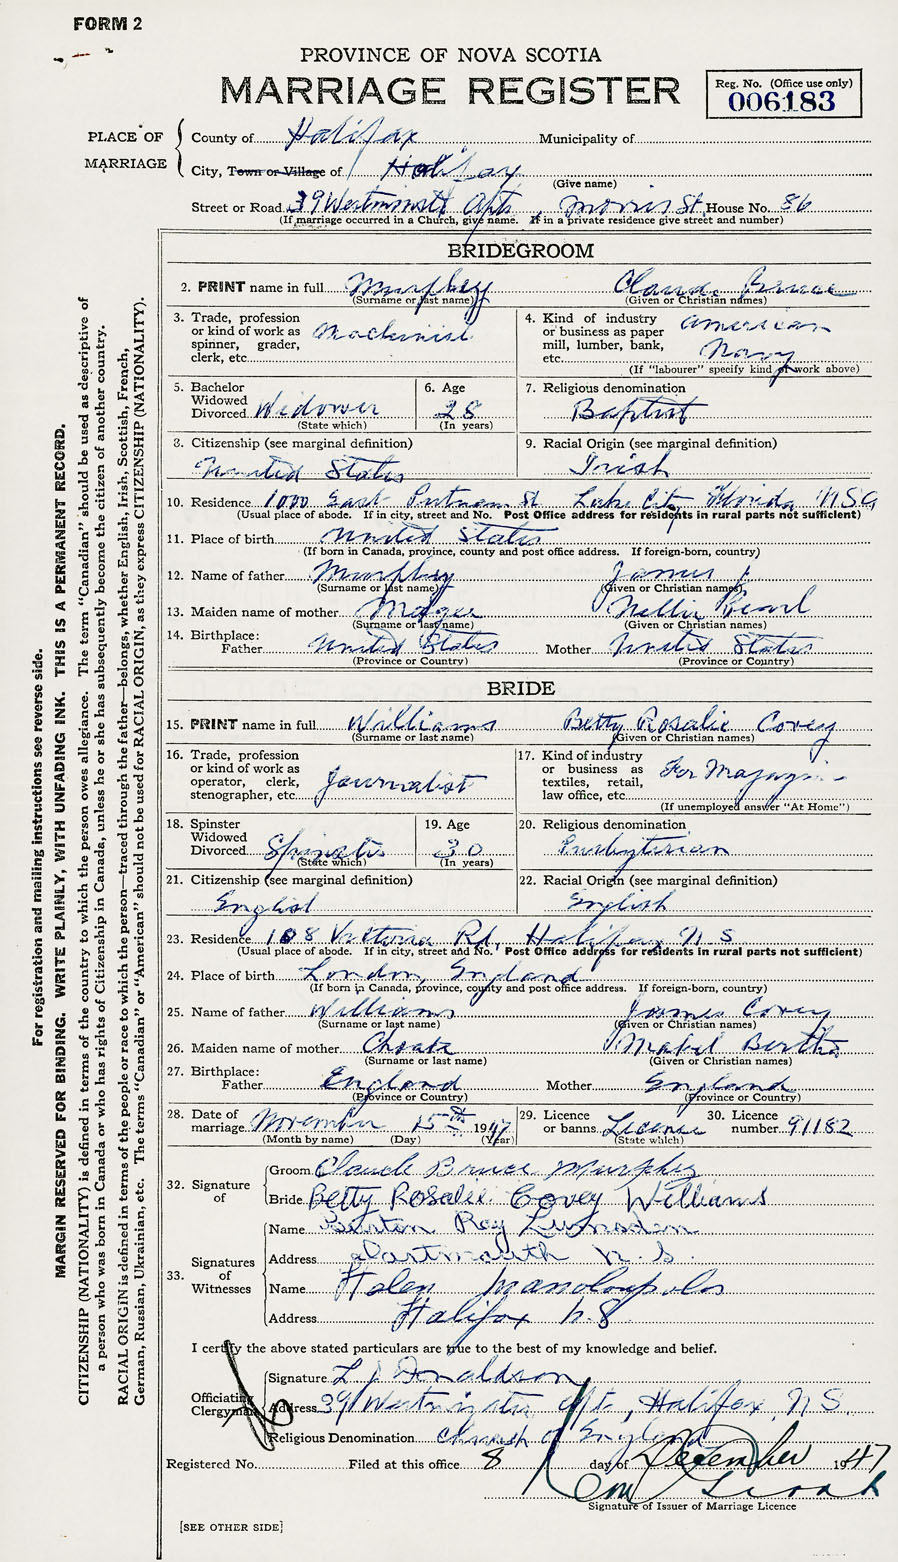 FORM 2
PROVINCE OF NOVA SCOTIA
MARRIAGE REGISTER
Reg. No. (Office use only)
006183
PLACE OF MARRIAGE
County of Halifax Municipality of
City, Town or Village of Halifax
(Give name)
Street or Road 39 Westminster Apts, Morris St. House No. 86
(If marriage occurred in a Church, give name. If in a private residence give street and number)
BRIDEGROOM
2. PRINT name in full Murphy Claude Bruce
(Surname or last name) (Given or Christian names)
3. Trade, profession or kind of work as spinner, grader, clerk, etc. Machinist
4. Kind of industry or business as paper mill, lumber, bank, etc. American Navy
(If "labourer" specify kind of work above)
5. Bachelor Widowed Divorced Widower
(State which)
6. Age 28
(In years)
7. Religious denomination Baptist
8. Citizenship (see marginal definition) United States
9. Racial Origin (see marginal definition) Irish
10. Residence 1000 East Putnam St Lake City Florida USA
(Usual place of abode. If in city, street and No. Post Office address for residents in rural parts not sufficient)
11. Place of birth United States
(If born in Canada, province, county and post office address. If foreign-born, country)
12. Name of father Murphy James J
(Surname or last name) (Given or Christian names)
13. Maiden name of mother Magee Nellie Pearl
(Surname or last name) (Given or Christian names)
14. Birthplace:
Father United States Mother United States
(Province or Country) (Province or Country)
BRIDE
15. PRINT name in full Williams Betty Rosalie Covey
(Surname or last name) (Given or Christian names)
16. Trade, profession or kind of work as operator, clerk, stenographer, etc. Journalist
17. Kind of industry or business as textiles, retail, law office, etc. For Magazine
(If unemployed answer "At Home")
18. Spinster Widowed Divorced Spinster
(State which)
19. Age 30
(In years)
20. Religious denomination Presbyterian
21. Citizenship (see marginal definition) English
22. Racial Origin (see marginal definition) English
23. Residence 108 Victoria Rd, Halifax N S
(Usual place of abode. If in city, street and No. Post Office address for residents in rural parts not sufficient)
24. Place of birth London, England
(If born in Canada, province, county and post office address. If foreign-born, country)
25. Name of father Williams James Covey
(Surname or last name) (Given or Christian names)
26. Maiden name of mother Choate Mabel Bertha
(Surname or last name) (Given or Christian names)
27. Birthplace:
Father England Mother England
(Province or Country) (Province or Country)
28. Date of marriage November 15th 1947
(Month by name) (Day) (Year)
29. Licence or banns Licence
(State which)
30. Licence number 91182
32. Signature of
Groom Claude Bruce Murphy
Bride Betty Rosalie Covey Williams
33. Signatures of Witnesses
Name Burton Roy Lumsden
Address Dartmouth N.S.
Name Helen Manolopolos
Address Halifax N.S
I certify the above stated particulars are true to the best of my knowledge and belief.
Officiating Clergyman
Signature L J Donaldson
Address 39 Westminster Apt, Halifax, N.S.
Religious Denomination Church of England
Registered No. Filed at this office 8 day of December 1947
Signature of Issuer of Marriage Licence
[SEE OTHER SIDE]
For registration and mailing instructions see reverse side.
MARGIN RESERVED FOR BINDING. WRITE PLAINLY, WITH UNFADING INK. THIS IS A PERMANENT RECORD.
CITIZENSHIP (NATIONALITY) is defined in terms of the country to which the person owes allegiance. The term "Canadian" should be used as descriptive of
a person who was born in Canada or who has rights of Citizenship in Canada, unless he or she has subsequently become the citizen of another country.
RACIAL ORIGIN is defined in terms of the people or race to which the person—traced through the father—belongs, whether English, Irish, Scottish, French,
German, Russian, Ukrainian, etc. The terms "Canadian" or "American" should not be used for RACIAL ORIGIN, as they express CITIZENSHIP (NATIONALITY).